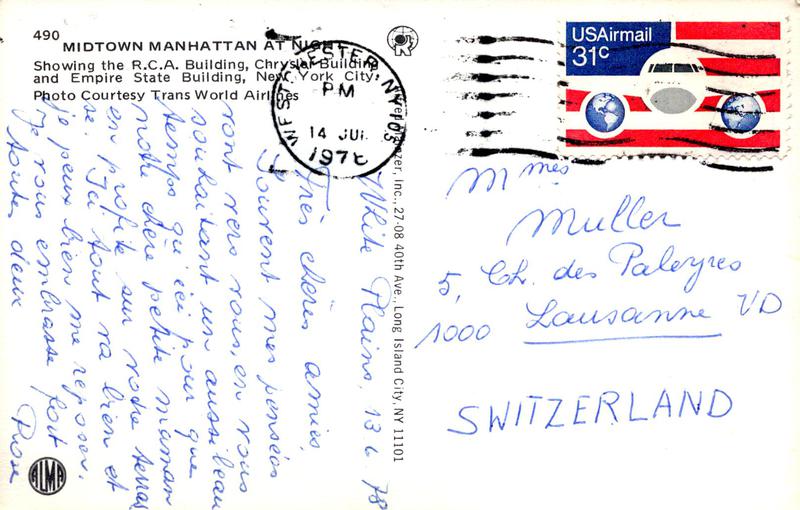 490
MIDTOWN MANHATTAN AT NIGHT
Showing the R.C.A. Building, Chrysler Building
and Empire State Building, New York City.
Photo Courtesy Trans World Airlines
WESTCHESTER NY 105
PM
14 JUL
1978
USAirmail
31c
Inc., 27-08 40th Ave., Long Island City, NY 11101
White Plains, 13 6 78
Très chères amies,
Souvent mes pensées
vont vers vous, en vous
souhaitant un aussi beau
temps qu'ici pour que
notre chère petite maman
en profite sur votre terras
se. Ici tout va bien et
je peux bien me reposer.
Je vous embrasse fort
toutes deux
Rose
Mmes
Muller
5, Ch. des Paleyres
1000 Lausanne VD
SWITZERLAND
ALMA